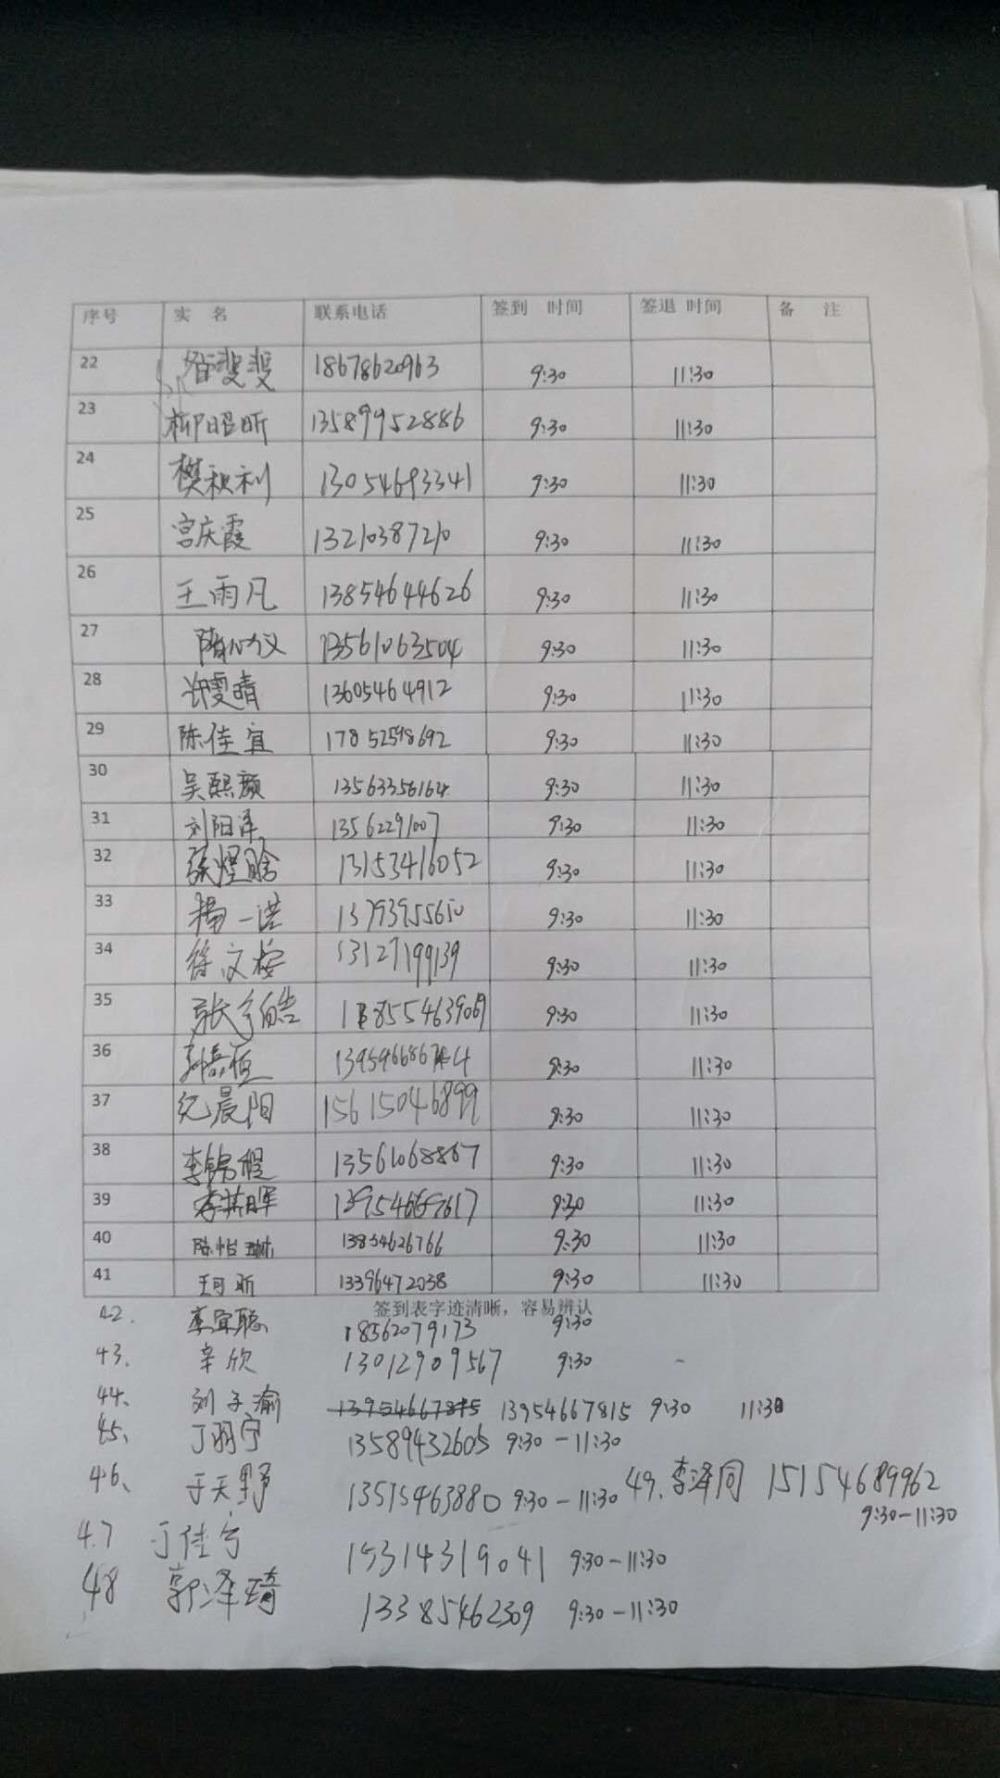 序号 实 名 联系电话 签到 时间 签退 时间 备 注
22 昝斐斐 18678620963 9:30 11:30
23 柳昭昕 13589952886 9:30 11:30
24 樊秋利 13054693341 9:30 11:30
25 宫庆霞 13210387210 9:30 11:30
26 王雨凡 13854644626 9:30 11:30
27 隋心汝 13561063504 9:30 11:30
28 许雯晴 13605464912 9:30 11:30
29 陈佳宜 17852598692 9:30 11:30
30 吴熙颜 13563356164 9:30 11:30
31 刘阳泽 13562291007 9:30 11:30
32 张煜晗 13153416052 9:30 11:30
33 杨一诺 13793955610 9:30 11:30
34 徐文梓 13127199139 9:30 11:30
35 张宇皓 9:30 11:30
36 9:30 11:30
37 纪晨阳 15615046899 9:30 11:30
38 李锦程 13561068867 9:30 11:30
39 李其晖 13954669617 9:30 11:30
40 陈怡琳 13854626766 9:30 11:30
41 王可昕 13396472038 9:30 11:30
签到表字迹清晰，容易辨认
42. 李宜聪 18562079173 9:30
43. 辛欣 13012909567 9:30
44、 刘子渝 13954667815 13954667815 9:30 11:30
45、 丁羽宁 13589432605 9:30－11:30
46、 于天野 13515463880 9:30－11:30 49. 李泽同 15154689962
9:30－11:30
47 丁佳兮 15314319041 9:30－11:30
48 郭泽琦 13385462309 9:30－11:30